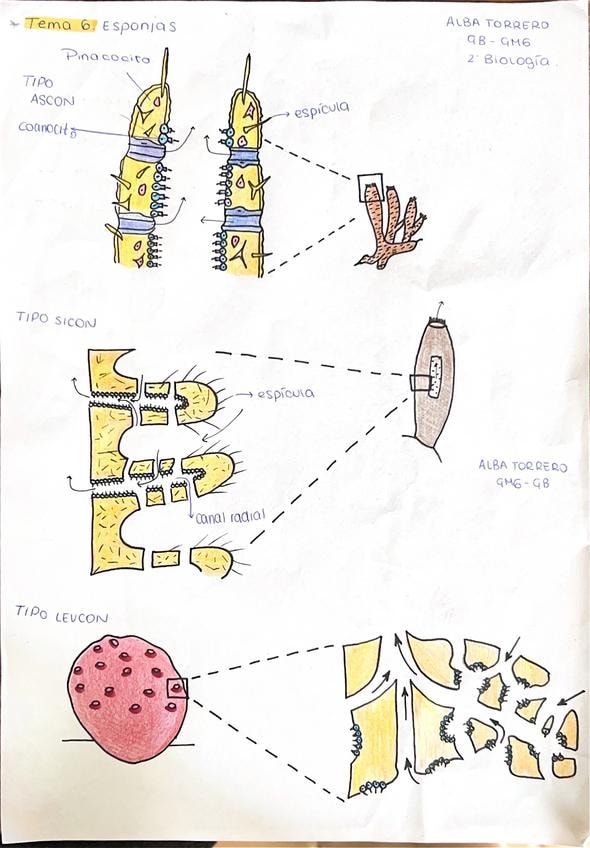 * Tema 6. Esponjas
ALBA TORRERO
GB - GM6
2º Biología.
Pinacocito
TIPO
ASCON
coanocito
espícula
TIPO SICON
espícula
ALBA TORRERO
GM6 - GB
canal radial
TIPO LEUCON